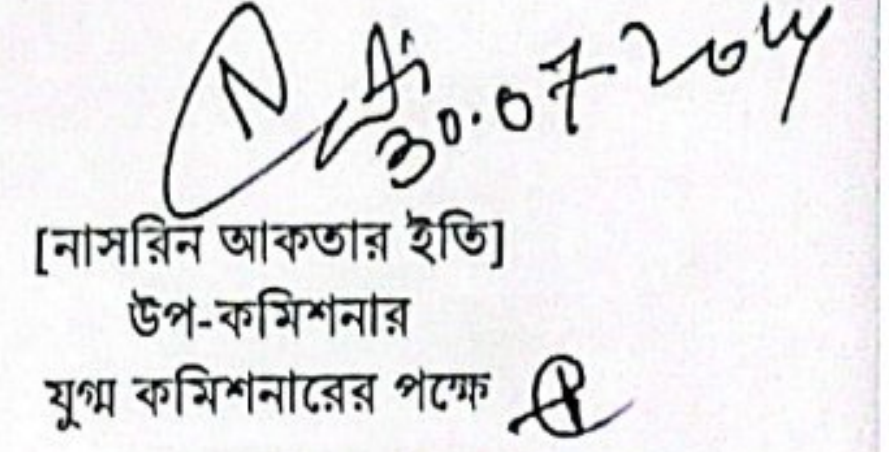 30.07.20
[নাসরিন আকতার ইতি]
উপ-কমিশনার
যুগ্ম কমিশনারের পক্ষে